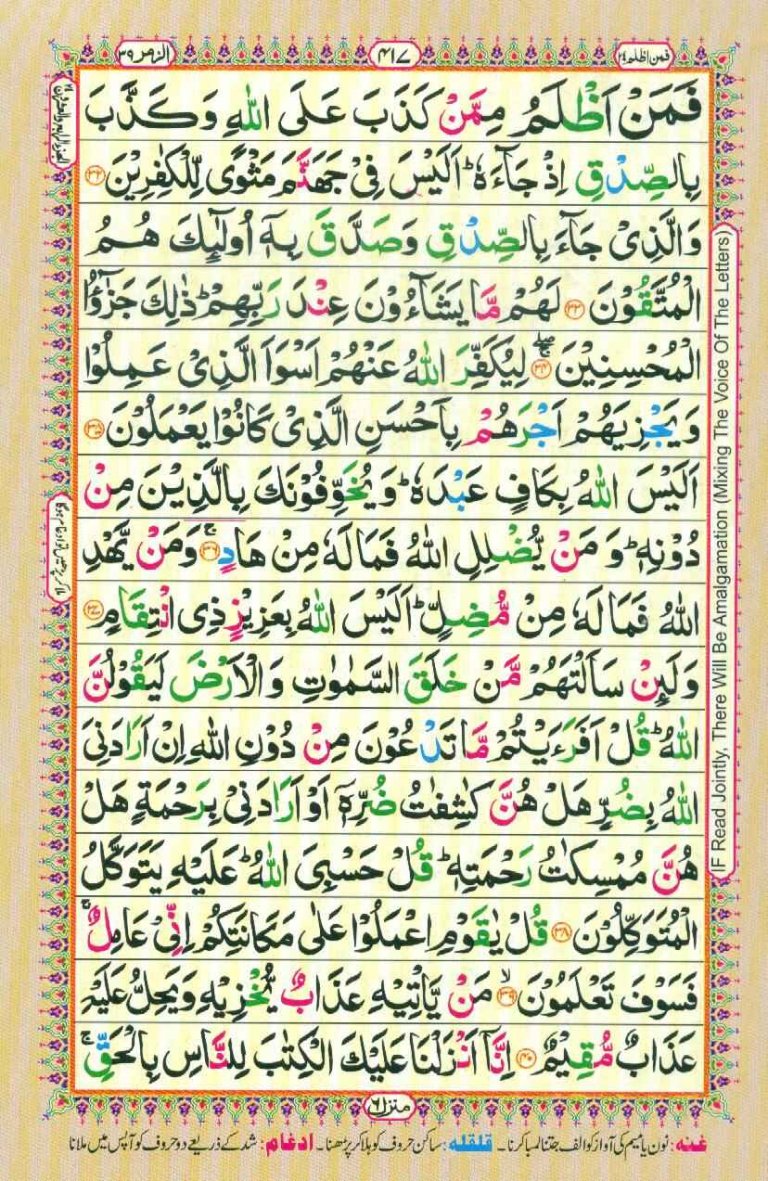 الزمر ٣٩
٤١٧
فمن اظلم ٢٤
فَمَنْ اَظْلَمُ مِمَّنْ كَذَبَ عَلَى اللّٰهِ وَكَذَّبَ
بِالصِّدْقِ اِذْ جَآءَهٗ ؕ اَلَيْسَ فِيْ جَهَنَّمَ مَثْوًى لِّلْكٰفِرِيْنَ ۝۳۲
وَالَّذِيْ جَآءَ بِالصِّدْقِ وَصَدَّقَ بِهٖۤ اُولٰٓئِكَ هُمُ
الْمُتَّقُوْنَ ۝۳۳ لَهُمْ مَّا يَشَآءُوْنَ عِنْدَ رَبِّهِمْ ؕ ذٰلِكَ جَزٰٓؤُا
الْمُحْسِنِيْنَ ۝۳۴ لِيُكَفِّرَ اللّٰهُ عَنْهُمْ اَسْوَاَ الَّذِيْ عَمِلُوْا
وَيَجْزِيَهُمْ اَجْرَهُمْ بِاَحْسَنِ الَّذِيْ كَانُوْا يَعْمَلُوْنَ ۝۳۵
اَلَيْسَ اللّٰهُ بِكَافٍ عَبْدَهٗ ؕ وَيُخَوِّفُوْنَكَ بِالَّذِيْنَ مِنْ
دُوْنِهٖ ؕ وَمَنْ يُّضْلِلِ اللّٰهُ فَمَا لَهٗ مِنْ هَادٍ ۝۳۶ ۚ وَمَنْ يَّهْدِ
اللّٰهُ فَمَا لَهٗ مِنْ مُّضِلٍّ ؕ اَلَيْسَ اللّٰهُ بِعَزِيْزٍ ذِي انْتِقَامٍ ۝۳۷
وَلَئِنْ سَاَلْتَهُمْ مَّنْ خَلَقَ السَّمٰوٰتِ وَالْاَرْضَ لَيَقُوْلُنَّ
اللّٰهُ ؕ قُلْ اَفَرَءَيْتُمْ مَّا تَدْعُوْنَ مِنْ دُوْنِ اللّٰهِ اِنْ اَرَادَنِيَ
اللّٰهُ بِضُرٍّ هَلْ هُنَّ كٰشِفٰتُ ضُرِّهٖۤ اَوْ اَرَادَنِيْ بِرَحْمَةٍ هَلْ
هُنَّ مُمْسِكٰتُ رَحْمَتِهٖ ؕ قُلْ حَسْبِيَ اللّٰهُ ؕ عَلَيْهِ يَتَوَكَّلُ
الْمُتَوَكِّلُوْنَ ۝۳۸ قُلْ يٰقَوْمِ اعْمَلُوْا عَلٰى مَكَانَتِكُمْ اِنِّيْ عَامِلٌ ۚ
فَسَوْفَ تَعْلَمُوْنَ ۝۳۹ ۙ مَنْ يَّاْتِيْهِ عَذَابٌ يُّخْزِيْهِ وَيَحِلُّ عَلَيْهِ
عَذَابٌ مُّقِيْمٌ ۝۴۰ اِنَّاۤ اَنْزَلْنَا عَلَيْكَ الْكِتٰبَ لِلنَّاسِ بِالْحَقِّ ۚ
الجزء الرابع والعشرون ٢٤
IF Read Jointly, There Will Be Amalgamation (Mixing The Voice Of The Letters)
منزل ٦
غنه: نون یا میم کی آواز کو الف جتنا لمبا کرنا۔ قلقله: ساکن حروف کو ہلا کر پڑھنا۔ ادغام: شد کے ذریعے دو حروف کو آپس میں ملانا